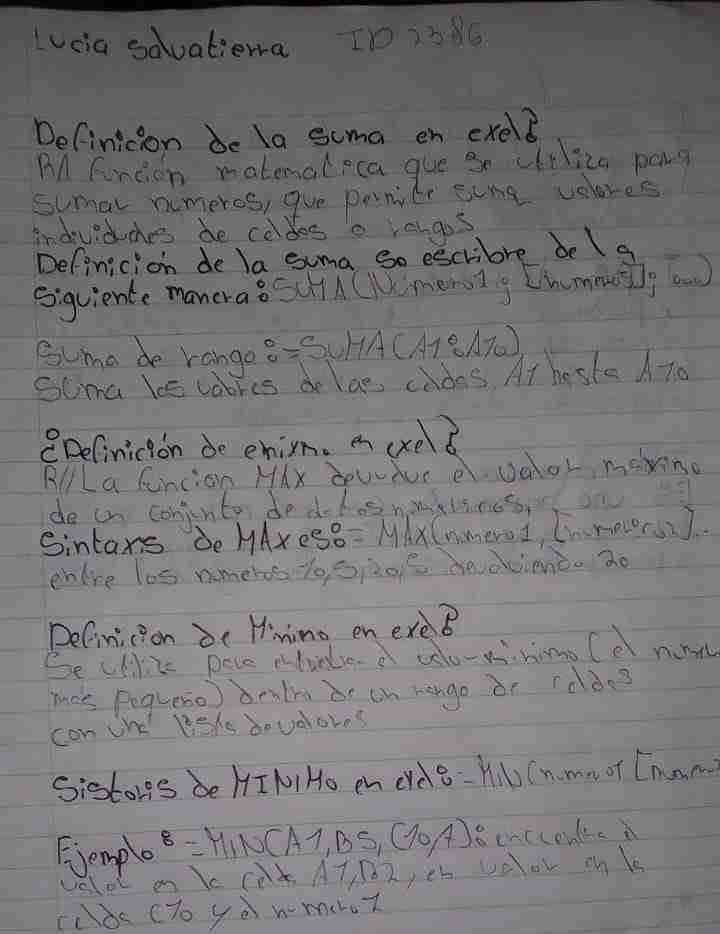 Lucia Salvatierra ID 2386
Definicion de la suma en exel?
R// función matematica que se utiliza para
sumar numeros, que permite suma valores
individuales de celdas o rangos
Definición de la suma so escribe de la
siguiente manera: SUMA(Número1; [numero2]; ...)
Suma de rango: =SUMA(A1:A10)
Suma los valores de las celdas A1 hasta A10
¿Definición de en exel?
R// La funcion MAX devuelve el valor máximo
de un conjunto de datos numéricos,
Sintaxis de MAX es: = MAX(numero1, [numero2]...
entre los numeros 10,5,20,8 devolviendo 20
Definicion de Minimo en exel?
Se utiliza para el valor minimo (el numero
más pequeño) dentro de un rango de celdas
con una lista de valores
Sistoris de MINIMO en exel: =MIN(numero1 [numero
Ejemplo: =MIN(A1,B5,C10,7): encuentra el
valor en la celda A1, B2, en valor en la
celda C10 y el numero 7